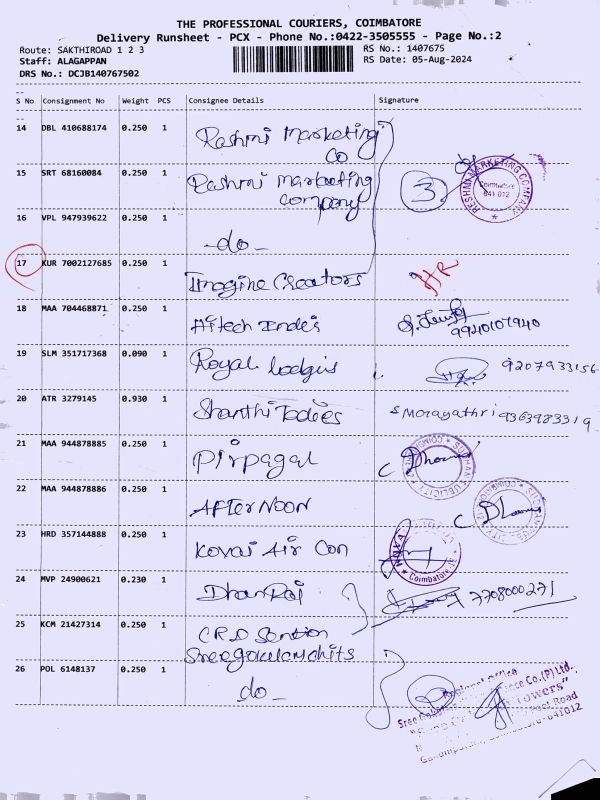 THE PROFESSIONAL COURIERS, COIMBATORE
Delivery Runsheet - PCX - Phone No.:0422-3505555 - Page No.:2
Route: SAKTHIROAD 1 2 3
RS No.: 1407675
Staff: ALAGAPPAN
RS Date: 05-Aug-2024
DRS No.: DCJB140767502
S No Consignment No Weight PCS Consignee Details Signature
14 DBL 410688174 0.250 1 Rashmi Marketing
Co
15 SRT 68160084 0.250 1 Rashmi Marketing
Company
3
RESHMI MARKETING COMPANY
Coimbatore
641 012
16 VPL 947939622 0.250 1 -do-
17 KUR 7002127685 0.250 1 Imagine Creators
HR
18 MAA 704468871 0.250 1 Hitech Indes
9940107940
19 SLM 351717368 0.090 1 Royal Lodgis
9207933156
20 ATR 3279145 0.930 1 Shanthi
9363983319
21 MAA 944878885 0.250 1 Pirpagal
22 MAA 944878886 0.250 1 AFTERNOON
23 HRD 357144888 0.250 1 Kovai Air Con
Coimbatore
24 MVP 24900621 0.230 1 Dhanraj
7708000271
25 KCM 21427314 0.250 1 C.R.D
Sreegokulamchits
26 POL 6148137 0.250 1 do-
Regional Office
Co.(P) Ltd.,
Towers"
Road
641012